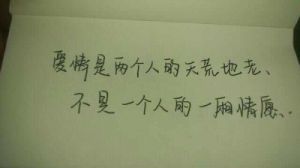 爱情是两个人的天荒地老、
不是一个人的一厢情愿..